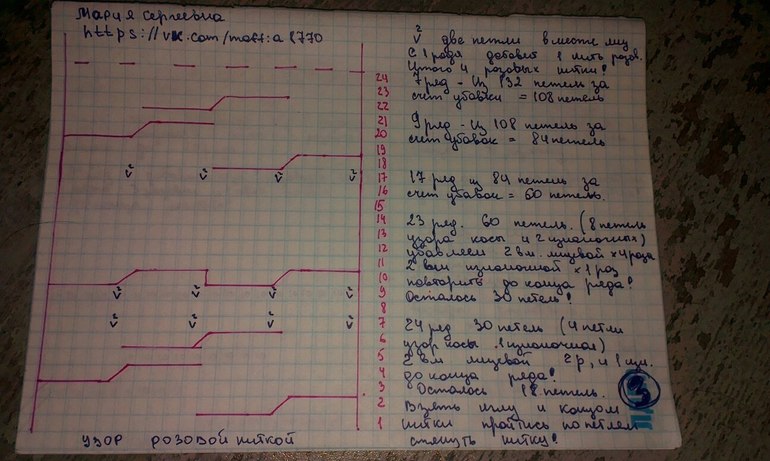 Мария Сергеевна
https://vk.com/
24
23
22
21
20
19
18
17
16
15
14
13
12
11
10
9
8
7
6
5
4
3
2
1
2 2 2 2
v v v v
2 2 2 2
v v v v
2 2 2 2
v v v v
узор розовой ниткой
2
v две петли вместе лиц
С 1 ряда добавет 1 нить розов.
Итого 4 розовых нитки!
7 ряд - Из 132 петель за
счет убавки = 108 петель
9 ряд - Из 108 петель за
счет убавок = 84 петель
17 ряд из 84 петель за
счет убавок = 60 петель.
23 ряд. 60 петель. (8 петель
узора косы и 2 изноночных)
убавляем 2 вм. лицевой × 4 раза
2 вм изноночной × 1 раз
повторить до конца ряда!
Осталось 30 петель!
24 ряд 30 петель (4 петли
узор косы 1 изноночная)
2 вм лицевой 2 р, и 1 изн.
до конца ряда!
Осталось 18 петель.
Взять иглу и концом
нитки пройтись по петлем
стянуть нитку!
3